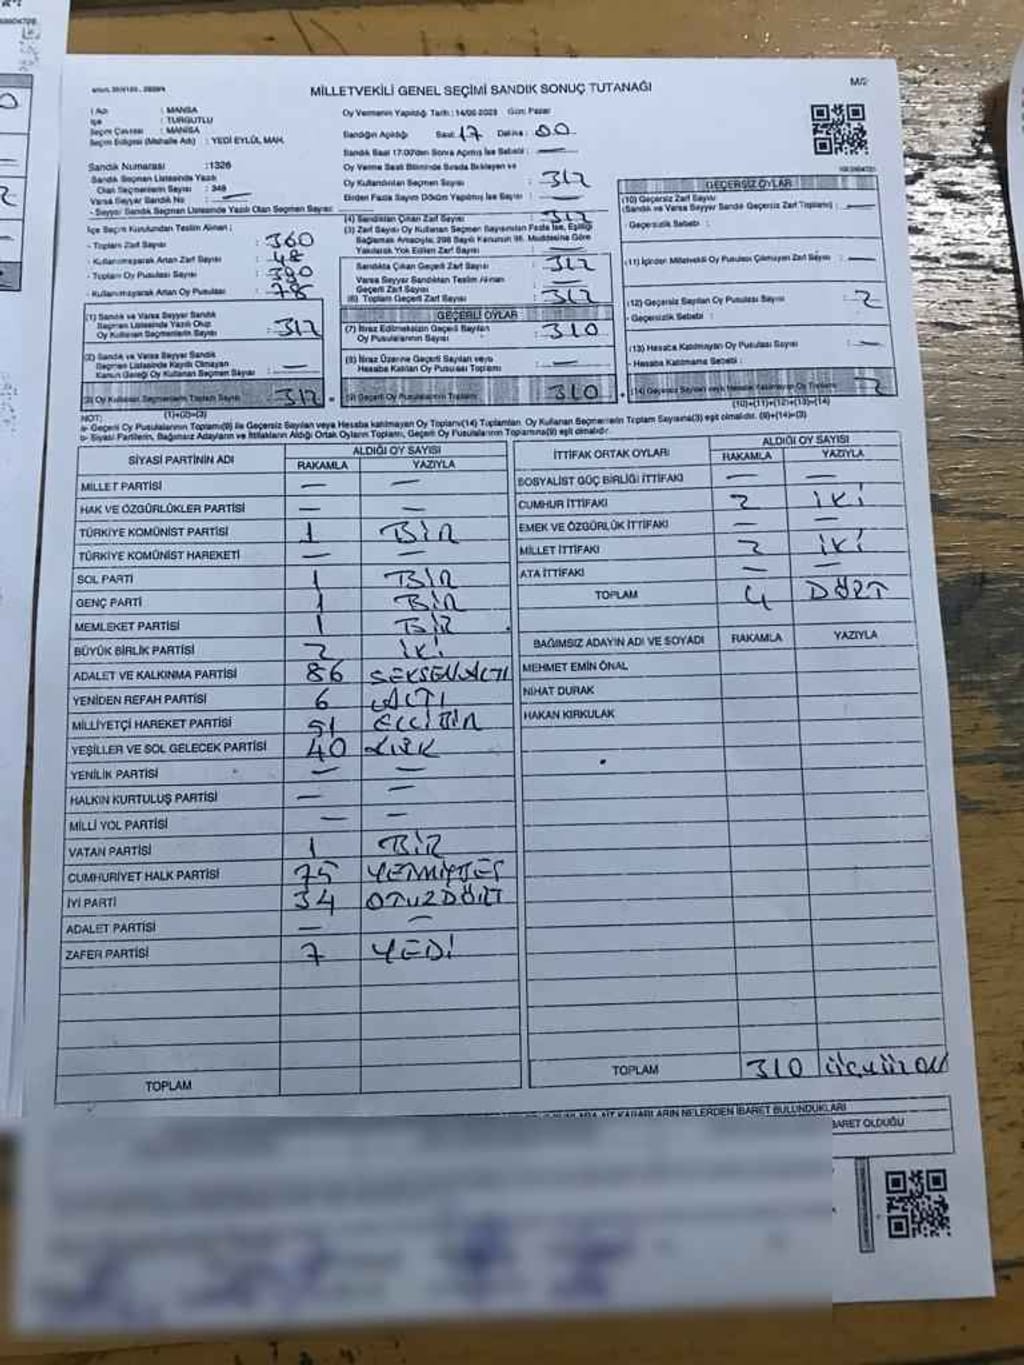 MİLLETVEKİLİ GENEL SEÇİMİ SANDIK SONUÇ TUTANAĞI
M/2
İl Adı : MANİSA
İlçe : TURGUTLU
Seçim Çevresi : MANİSA
Seçim Bölgesi (Mahalle Adı) : YEDİ EYLÜL MAH.
Oy Vermenin Yapıldığı Tarih : 14/05/2023 Gün: Pazar
Sandığın Açıldığı Saat : 17 Dakika : 00
Sandık Saat 17:00'den Sonra Açılmış İse Sebebi : —
Sandık Numarası :1326
Sandık Seçmen Listesinde Yazılı
Olan Seçmenlerin Sayısı : 348
Varsa Seyyar Sandık No : —
- Seyyar Sandık Seçmen Listesinde Yazılı Olan Seçmen Sayısı:
İlçe Seçim Kurulundan Teslim Alınan ;
- Toplam Zarf Sayısı : 360
- Kullanılmayarak Artan Zarf Sayısı : 48
- Toplam Oy Pusulası Sayısı : 390
- Kullanılmayarak Artan Oy Pusulası : 78
Oy Verme Saati Bitiminde Sırada Bekleyen ve
Oy Kullandırılan Seçmen Sayısı : 312
Birden Fazla Sayım Döküm Yapılmış İse Sayısı : —
(4) Sandıktan Çıkan Zarf Sayısı : 312
(5) Zarf Sayısı Oy Kullanan Seçmen Sayısından Fazla İse, Eşitliği
Sağlamak Amacıyla; 298 Sayılı Kanunun 98. Maddesine Göre
Yakılarak Yok Edilen Zarf Sayısı : —
Sandıkta Çıkan Geçerli Zarf Sayısı : 312
Varsa Seyyar Sandıktan Teslim Alınan
Geçerli Zarf Sayısı : —
(6) Toplam Geçerli Zarf Sayısı : 312
(1) Sandık ve Varsa Seyyar Sandık
Seçmen Listesinde Yazılı Olup
Oy Kullanan Seçmenlerin Sayısı : 312
(2) Sandık ve Varsa Seyyar Sandık
Seçmen Listesinde Kayıtlı Olmayan
Kanun Gereği Oy Kullanan Seçmen Sayısı : —
(3) Oy Kullanan Seçmenlerin Toplam Sayısı : 312
(1)+(2)=(3)
GEÇERLİ OYLAR
(7) İtiraz Edilmeksizin Geçerli Sayılan
Oy Pusulalarının Sayısı : 310
(8) İtiraz Üzerine Geçerli Sayılan veya
Hesaba Katılan Oy Pusulası Toplamı : —
(9) Geçerli Oy Pusulalarının Toplamı : 310
GEÇERSİZ OYLAR
(10) Geçersiz Zarf Sayısı
(Sandık ve Varsa Seyyar Sandık Geçersiz Zarf Toplamı) : —
- Geçersizlik Sebebi :
(11) İçinden Milletvekili Oy Pusulası Çıkmayan Zarf Sayısı : —
(12) Geçersiz Sayılan Oy Pusulası Sayısı : 2
- Geçersizlik Sebebi :
(13) Hesaba Katılmayan Oy Pusulası Sayısı : —
- Hesaba Katılmama Sebebi :
(14) Geçersiz Sayılan veya Hesaba Katılmayan Oy Toplamı : 2
(10)+(11)+(12)+(13)=(14)
NOT:
a- Geçerli Oy Pusulası Toplamı(9) ile Geçersiz Sayılan veya Hesaba katılmayan Oy Toplamı(14) Toplamları, Oy Kullanan Seçmenlerin Toplam Sayısına(3) eşit olmalıdır. (9)+(14)=(3)
b- Siyasi Partilerin, Bağımsız Adayların ve İttifakların Aldığı Ortak Oyların Toplamı, Geçerli Oy Pusulalarının Toplamına(9) eşit olmalıdır.
SİYASİ PARTİNİN ADI ALDIĞI OY SAYISI
RAKAMLA YAZIYLA
MİLLET PARTİSİ — —
HAK VE ÖZGÜRLÜKLER PARTİSİ — —
TÜRKİYE KOMÜNİST PARTİSİ 1 BİR
TÜRKİYE KOMÜNİST HAREKETİ — —
SOL PARTİ 1 BİR
GENÇ PARTİ 1 BİR
MEMLEKET PARTİSİ 1 BİR
BÜYÜK BİRLİK PARTİSİ 2 İKİ
ADALET VE KALKINMA PARTİSİ 86 SEKSENALTI
YENİDEN REFAH PARTİSİ 6 ALTI
MİLLİYETÇİ HAREKET PARTİSİ 51 ELLİBİR
YEŞİLLER VE SOL GELECEK PARTİSİ 40 KIRK
YENİLİK PARTİSİ — —
HALKIN KURTULUŞ PARTİSİ — —
MİLLİ YOL PARTİSİ — —
VATAN PARTİSİ 1 BİR
CUMHURİYET HALK PARTİSİ 75 YETMİŞBEŞ
İYİ PARTİ 34 OTUZDÖRT
ADALET PARTİSİ — —
ZAFER PARTİSİ 7 YEDİ
TOPLAM
İTTİFAK ORTAK OYLARI ALDIĞI OY SAYISI
RAKAMLA YAZIYLA
SOSYALİST GÜÇ BİRLİĞİ İTTİFAKI — —
CUMHUR İTTİFAKI 2 İKİ
EMEK VE ÖZGÜRLÜK İTTİFAKI — —
MİLLET İTTİFAKI 2 İKİ
ATA İTTİFAKI — —
TOPLAM 4 DÖRT
BAĞIMSIZ ADAYIN ADI VE SOYADI RAKAMLA YAZIYLA
MEHMET EMİN ÖNAL
NİHAT DURAK
HAKAN KIRKULAK
TOPLAM 310 ÜÇYÜZON
KARARLARIN NELERDEN İBARET BULUNDUKLARI
İBARET OLDUĞU